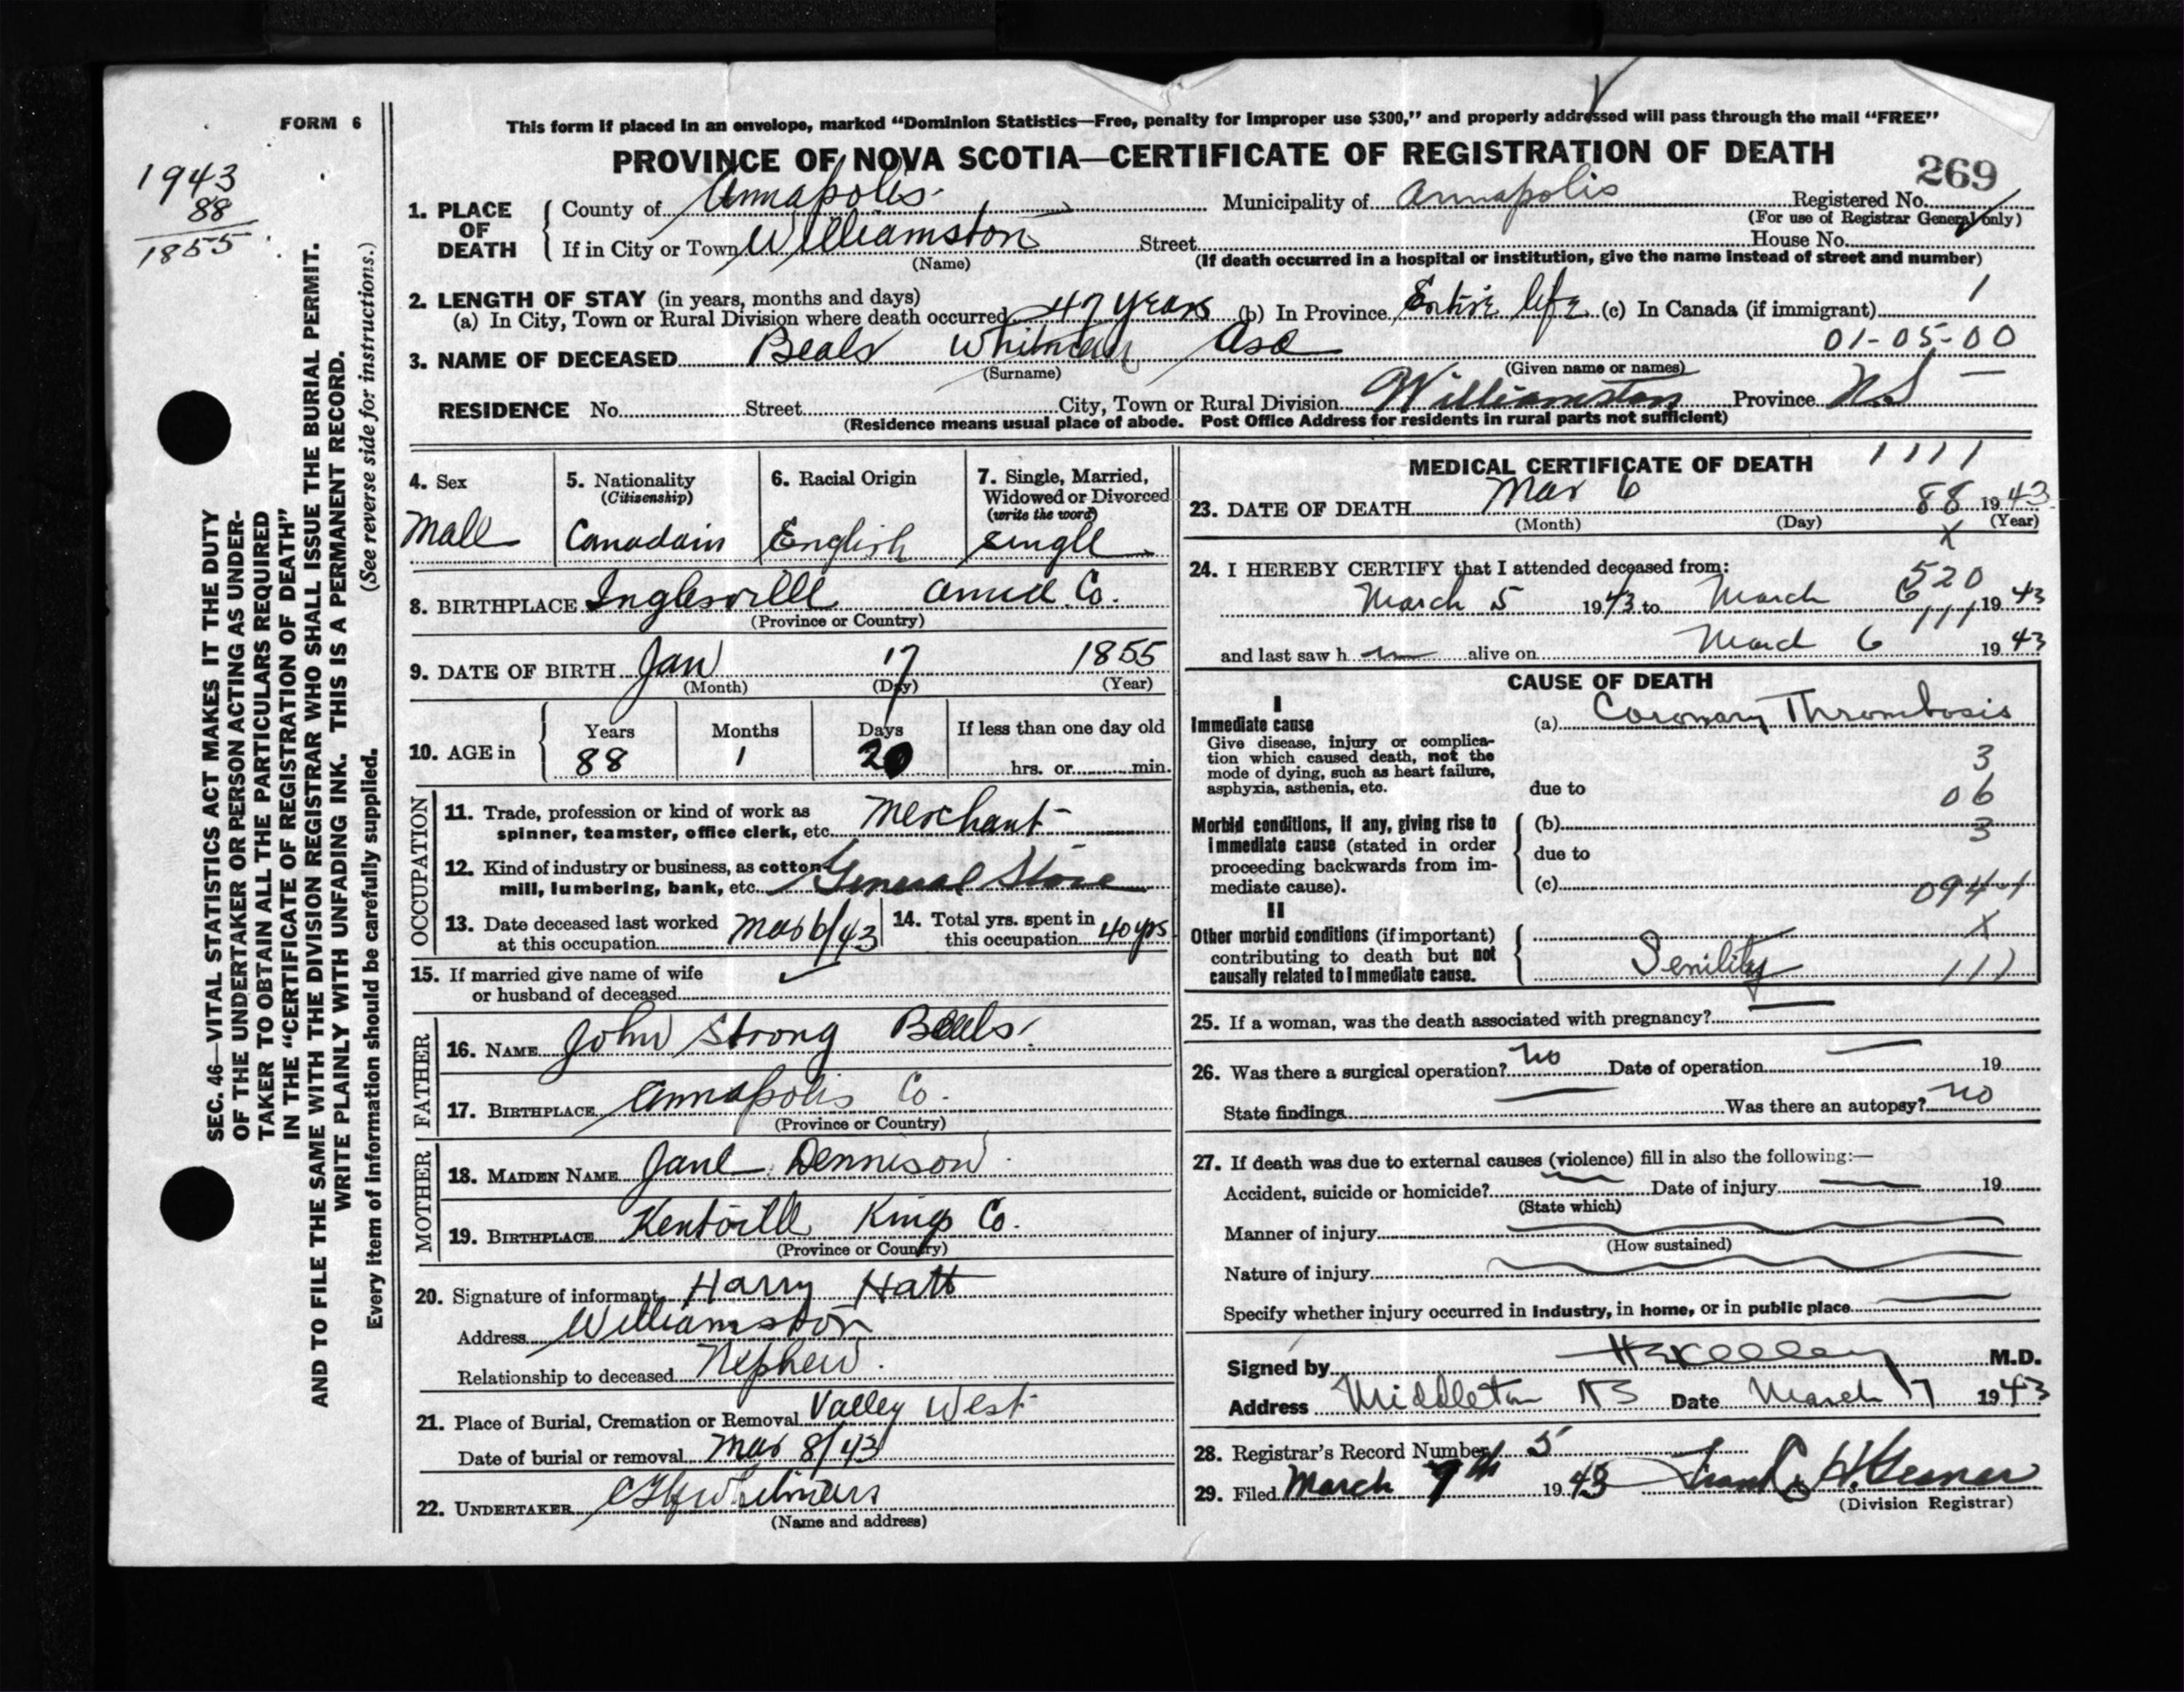 FORM 6
1943
88
1855
SEC. 46—VITAL STATISTICS ACT MAKES IT THE DUTY
OF THE UNDERTAKER OR PERSON ACTING AS UNDER-
TAKER TO OBTAIN ALL THE PARTICULARS REQUIRED
IN THE "CERTIFICATE OF REGISTRATION OF DEATH"
AND TO FILE THE SAME WITH THE DIVISION REGISTRAR WHO SHALL ISSUE THE BURIAL PERMIT.
WRITE PLAINLY WITH UNFADING INK. THIS IS A PERMANENT RECORD.
Every item of information should be carefully supplied. (See reverse side for instructions.)
This form if placed in an envelope, marked "Dominion Statistics—Free, penalty for improper use $300," and properly addressed will pass through the mail "FREE"
PROVINCE OF NOVA SCOTIA—CERTIFICATE OF REGISTRATION OF DEATH
269
1. PLACE OF DEATH County of Annapolis Municipality of Annapolis Registered No.
(For use of Registrar General only)
If in City or Town Williamston Street House No.
(Name) (If death occurred in a hospital or institution, give the name instead of street and number)
2. LENGTH OF STAY (in years, months and days)
(a) In City, Town or Rural Division where death occurred 47 years (b) In Province Entire life (c) In Canada (if immigrant) 1
3. NAME OF DECEASED Beals Whitman Asa 01-05-00
(Surname) (Given name or names)
RESIDENCE No. Street City, Town or Rural Division Williamston Province N.S
(Residence means usual place of abode. Post Office Address for residents in rural parts not sufficient)
4. Sex
Male
5. Nationality
(Citizenship)
Canadain
6. Racial Origin
English
7. Single, Married,
Widowed or Divorced
(write the word)
single
8. BIRTHPLACE Inglesville Co.
(Province or Country)
9. DATE OF BIRTH Jan 17 1855
(Month) (Day) (Year)
10. AGE in Years Months Days If less than one day old
88 1 20 hrs. or min.
OCCUPATION
11. Trade, profession or kind of work as
spinner, teamster, office clerk, etc. Merchant
12. Kind of industry or business, as cotton
mill, lumbering, bank, etc. General Store
13. Date deceased last worked
at this occupation Mar 6/43
14. Total yrs. spent in
this occupation 40 yrs
15. If married give name of wife
or husband of deceased
FATHER
16. NAME John Strong Beals
17. BIRTHPLACE Annapolis Co.
(Province or Country)
MOTHER
18. MAIDEN NAME Jane Dennison
19. BIRTHPLACE Kentville Kings Co.
(Province or Country)
20. Signature of informant Harry Hatt
Address Williamston
Relationship to deceased Nephew.
21. Place of Burial, Cremation or Removal Valley West
Date of burial or removal Mar 8/43
22. UNDERTAKER
(Name and address)
MEDICAL CERTIFICATE OF DEATH 1111
23. DATE OF DEATH Mar 6 88 1943
(Month) (Day) (Year)
X
24. I HEREBY CERTIFY that I attended deceased from:
520
March 5 1943 to March 6 1943
111
and last saw h im alive on March 6 1943
CAUSE OF DEATH
I
Immediate cause
Give disease, injury or complica-
tion which caused death, not the
mode of dying, such as heart failure,
asphyxia, asthenia, etc.
(a) Coronary Thrombosis
3
due to
06
Morbid conditions, if any, giving rise to
immediate cause (stated in order
proceeding backwards from im-
mediate cause).
(b)
3
due to
(c)
094-1
II
Other morbid conditions (if important)
contributing to death but not
causally related to immediate cause.
X
Senility 111
25. If a woman, was the death associated with pregnancy?
26. Was there a surgical operation? no Date of operation 19
State findings Was there an autopsy? no
27. If death was due to external causes (violence) fill in also the following:—
Accident, suicide or homicide? Date of injury 19
(State which)
Manner of injury
(How sustained)
Nature of injury
Specify whether injury occurred in industry, in home, or in public place
Signed by M.D.
Address Middleton NS Date March 7 1943
28. Registrar's Record Number 5
29. Filed March 9th 1943
(Division Registrar)